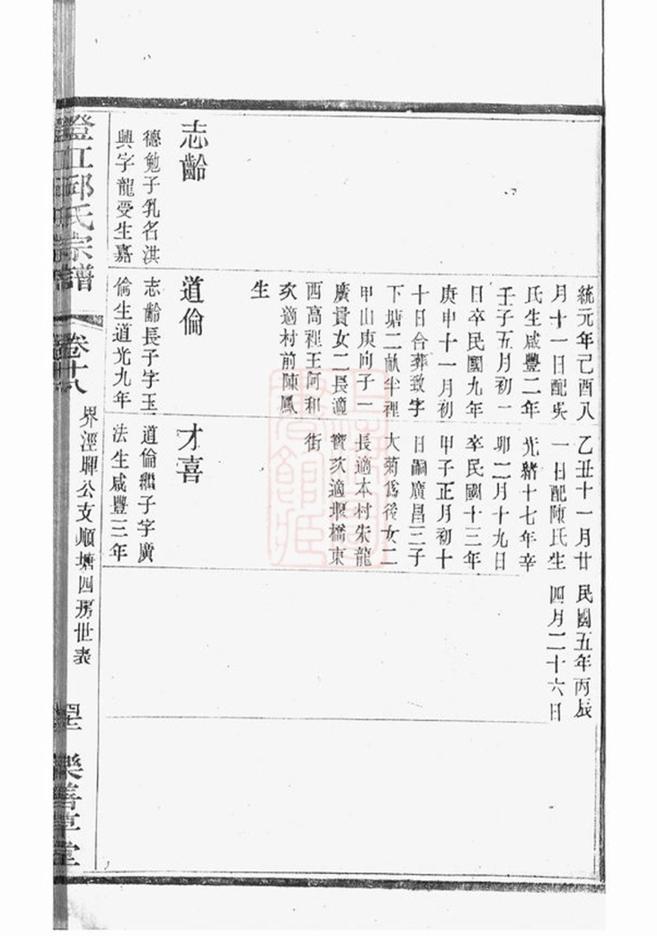 統元年己酉八
月十一日配吳
氏生咸豐二年
壬子五月初一
日卒民國九年
庚申十一月初
十日合葬致字
下塘二畝半裡
甲山庚向子一
廣貴女二長適
西高裡王阿和
次適村前陳鳳
生
乙丑十一月廿
一日配陳氏生
光緒十七年辛
卯二月十九日
卒民國十三年
甲子正月初十
日嗣廣昌三子
大菊爲後女二
長適本村朱龍
寶次適堰橋東
街
民國五年丙辰
四月二十六日
志齡
德勉子乳名淇
興字龍受生嘉
道倫
志齡長子字玉
倫生道光九年
才喜
道倫繼子字廣
法生咸豐三年
界涇牌公支順塘四房世表
澄江邱氏宗譜
卷十八
樂善草堂